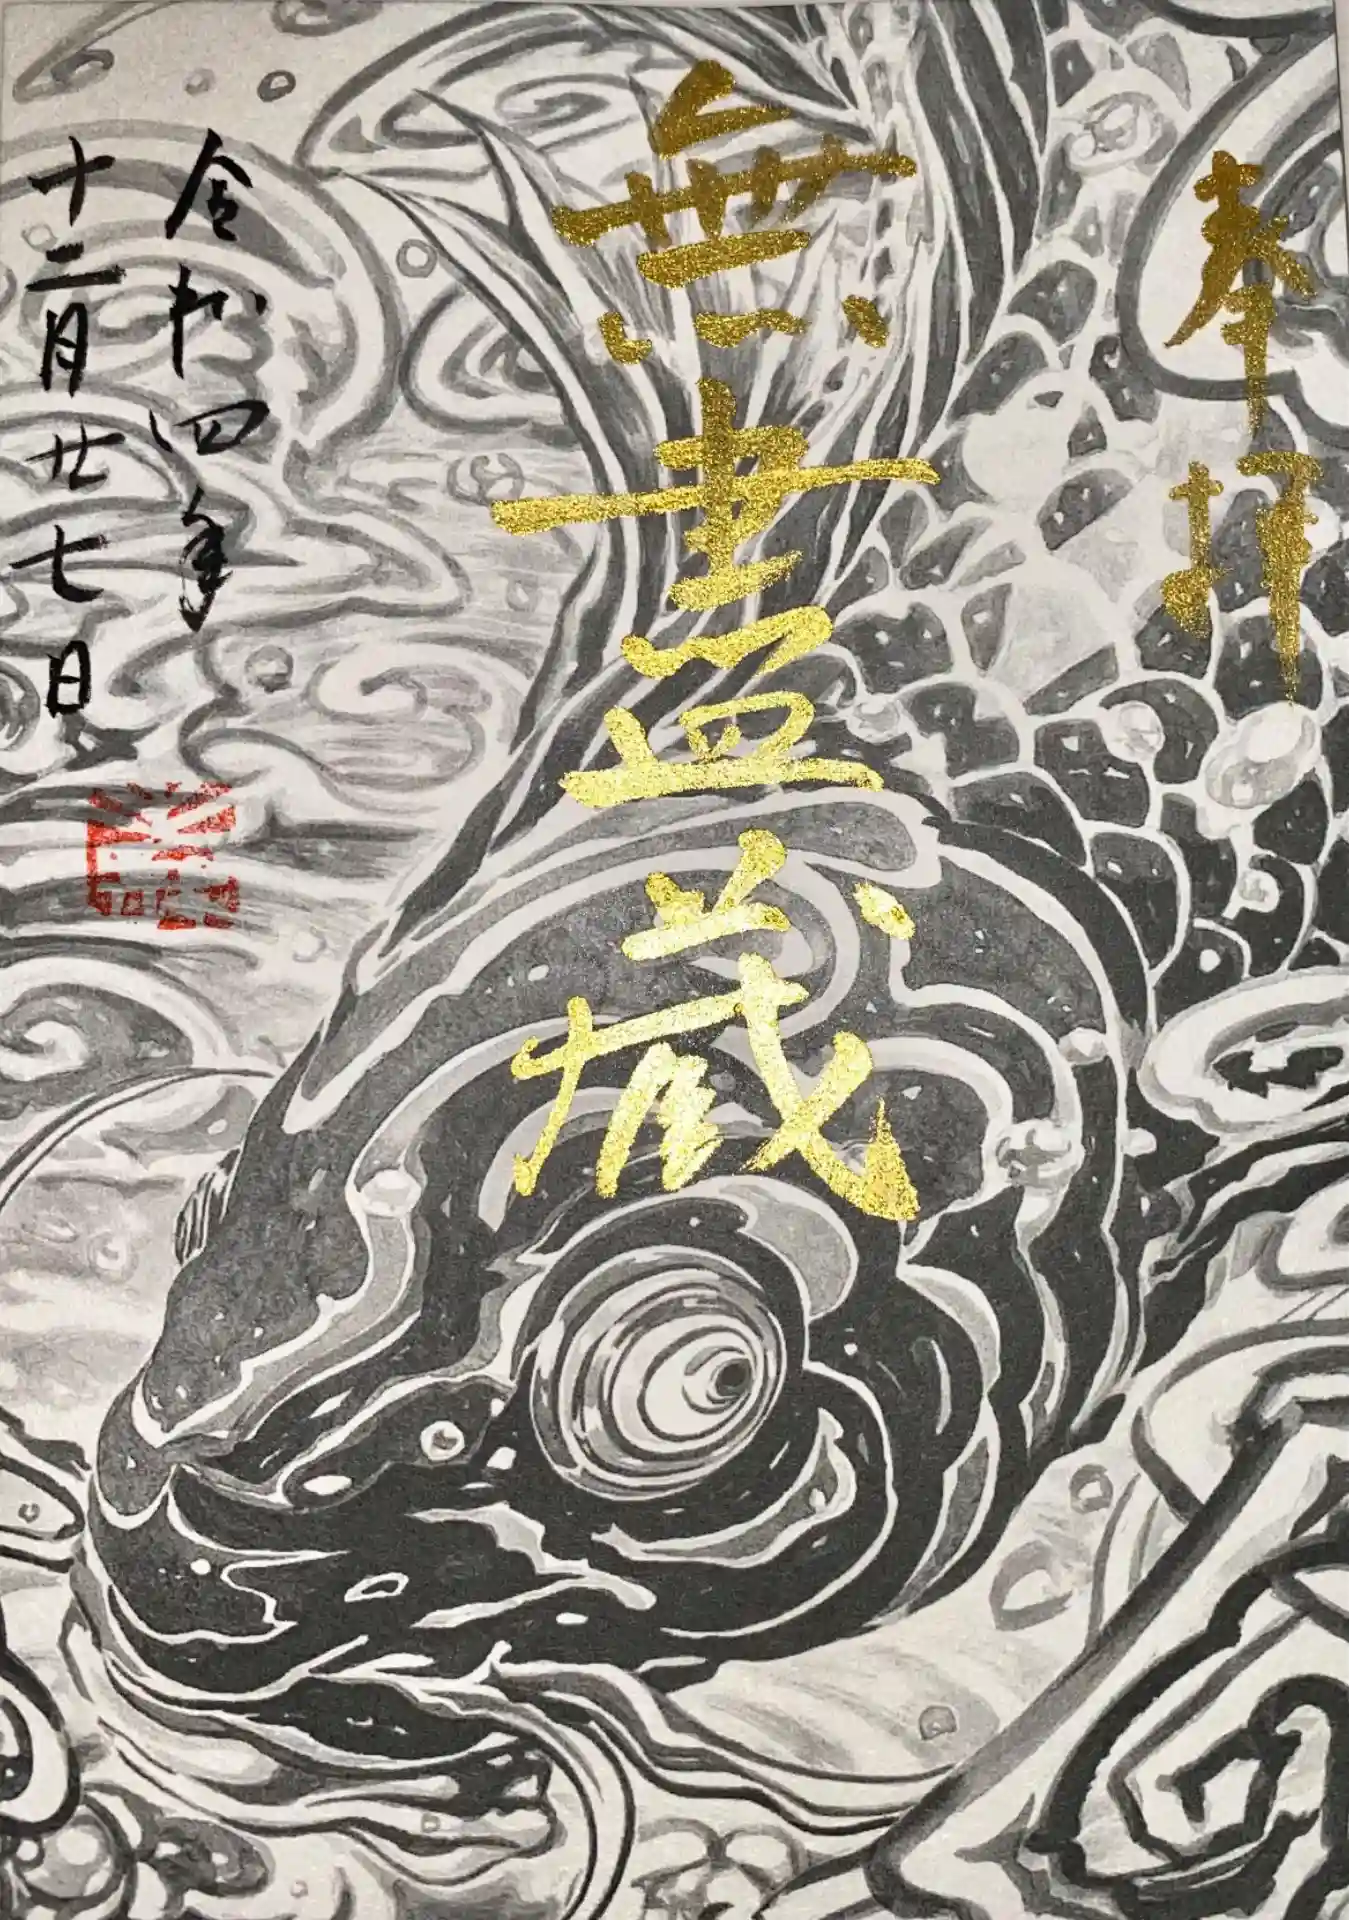 奉拝
無盡蔵
令和四年
十二月廿七日